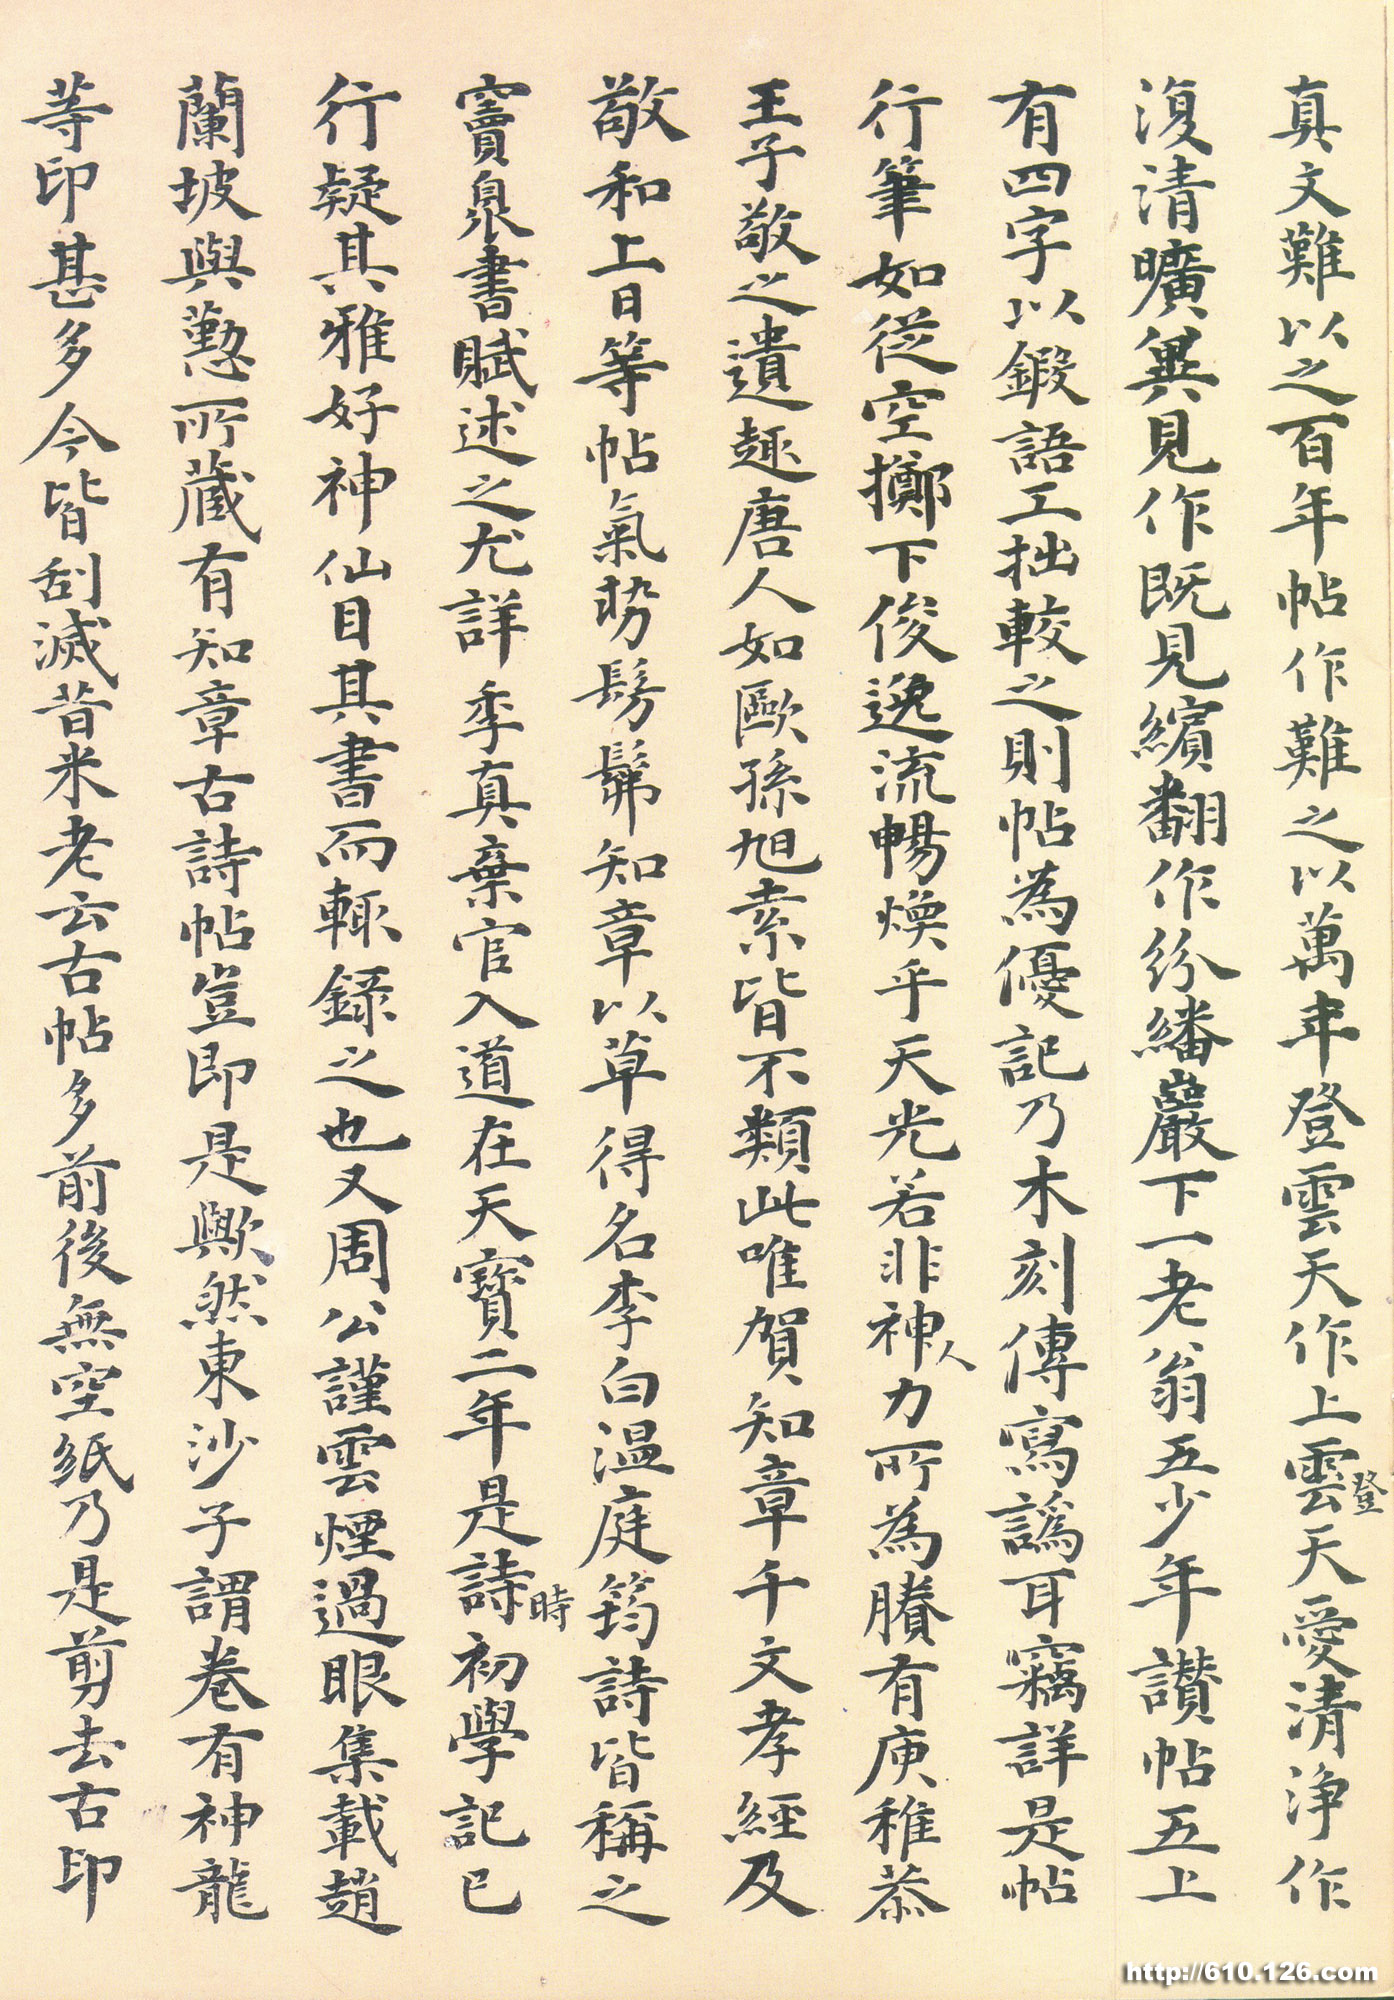 真文難以之百年帖作難之以萬年登雲天作上雲登天愛清淨作
復清曠巽見作既見繽翻作紛繙巖下一老翁五少年讚帖五上
有四字以鍛語工拙較之則帖為優記乃木刻傳寫譌耳竊詳是帖
行筆如從空擲下俊逸流暢煥乎天光若非神人力所為賸有庾稚恭
王子敬之遺趣唐人如歐孫旭素皆不類此唯賀知章千文孝經及
敬和上日等帖氣勢髣髴知章以草得名李白溫庭筠詩皆稱之
竇臮書賦述之尤詳季真棄官入道在天寶二年是詩時初學記已
行疑其雅好神仙目其書而輒錄之也又周公謹雲煙過眼集載趙
蘭坡與懃所藏有知章古詩帖豈即是歟然東沙子謂卷有神龍
等印甚多今皆刮滅昔米老云古帖多前後無空紙乃是剪去古印
http://610.126.com